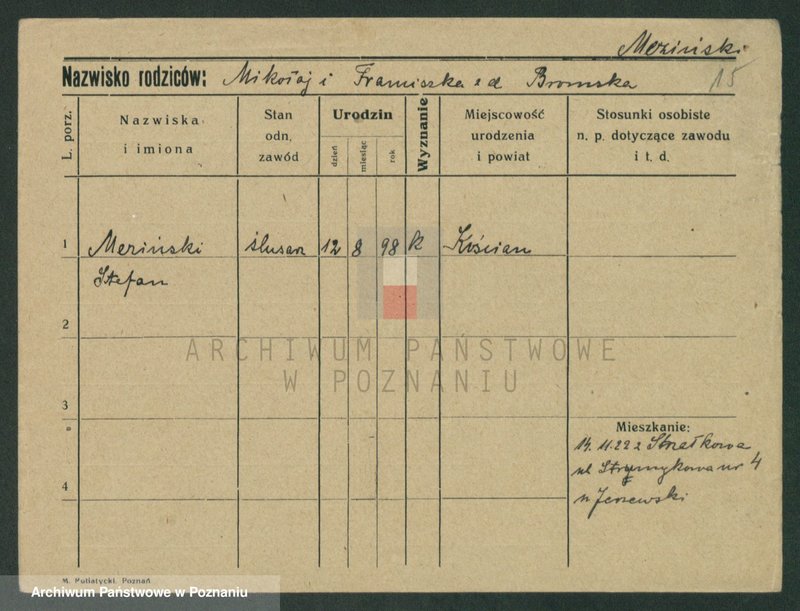 Meziński
Nazwisko rodziców: Mikołaj i Franciszka z d. Bromska
15
L. porz.
Nazwiska
i imiona
Stan
odn.
zawód
Urodzin
dzień
miesiąc
rok
Wyznanie
Miejscowość
urodzenia
i powiat
Stosunki osobiste
n. p. dotyczące zawodu
i t. d.
1
Meziński
ślusarz
12
8
98
k
Kościan
Stefan
2
ARCHIWUM PAŃSTWOWE
W POZNANIU
3
Mieszkanie:
11.22 z Strzałkowa
ul Strumykowa nr 4
4
M. Putiatycki, Poznań
Archiwum Państwowe w Poznaniu